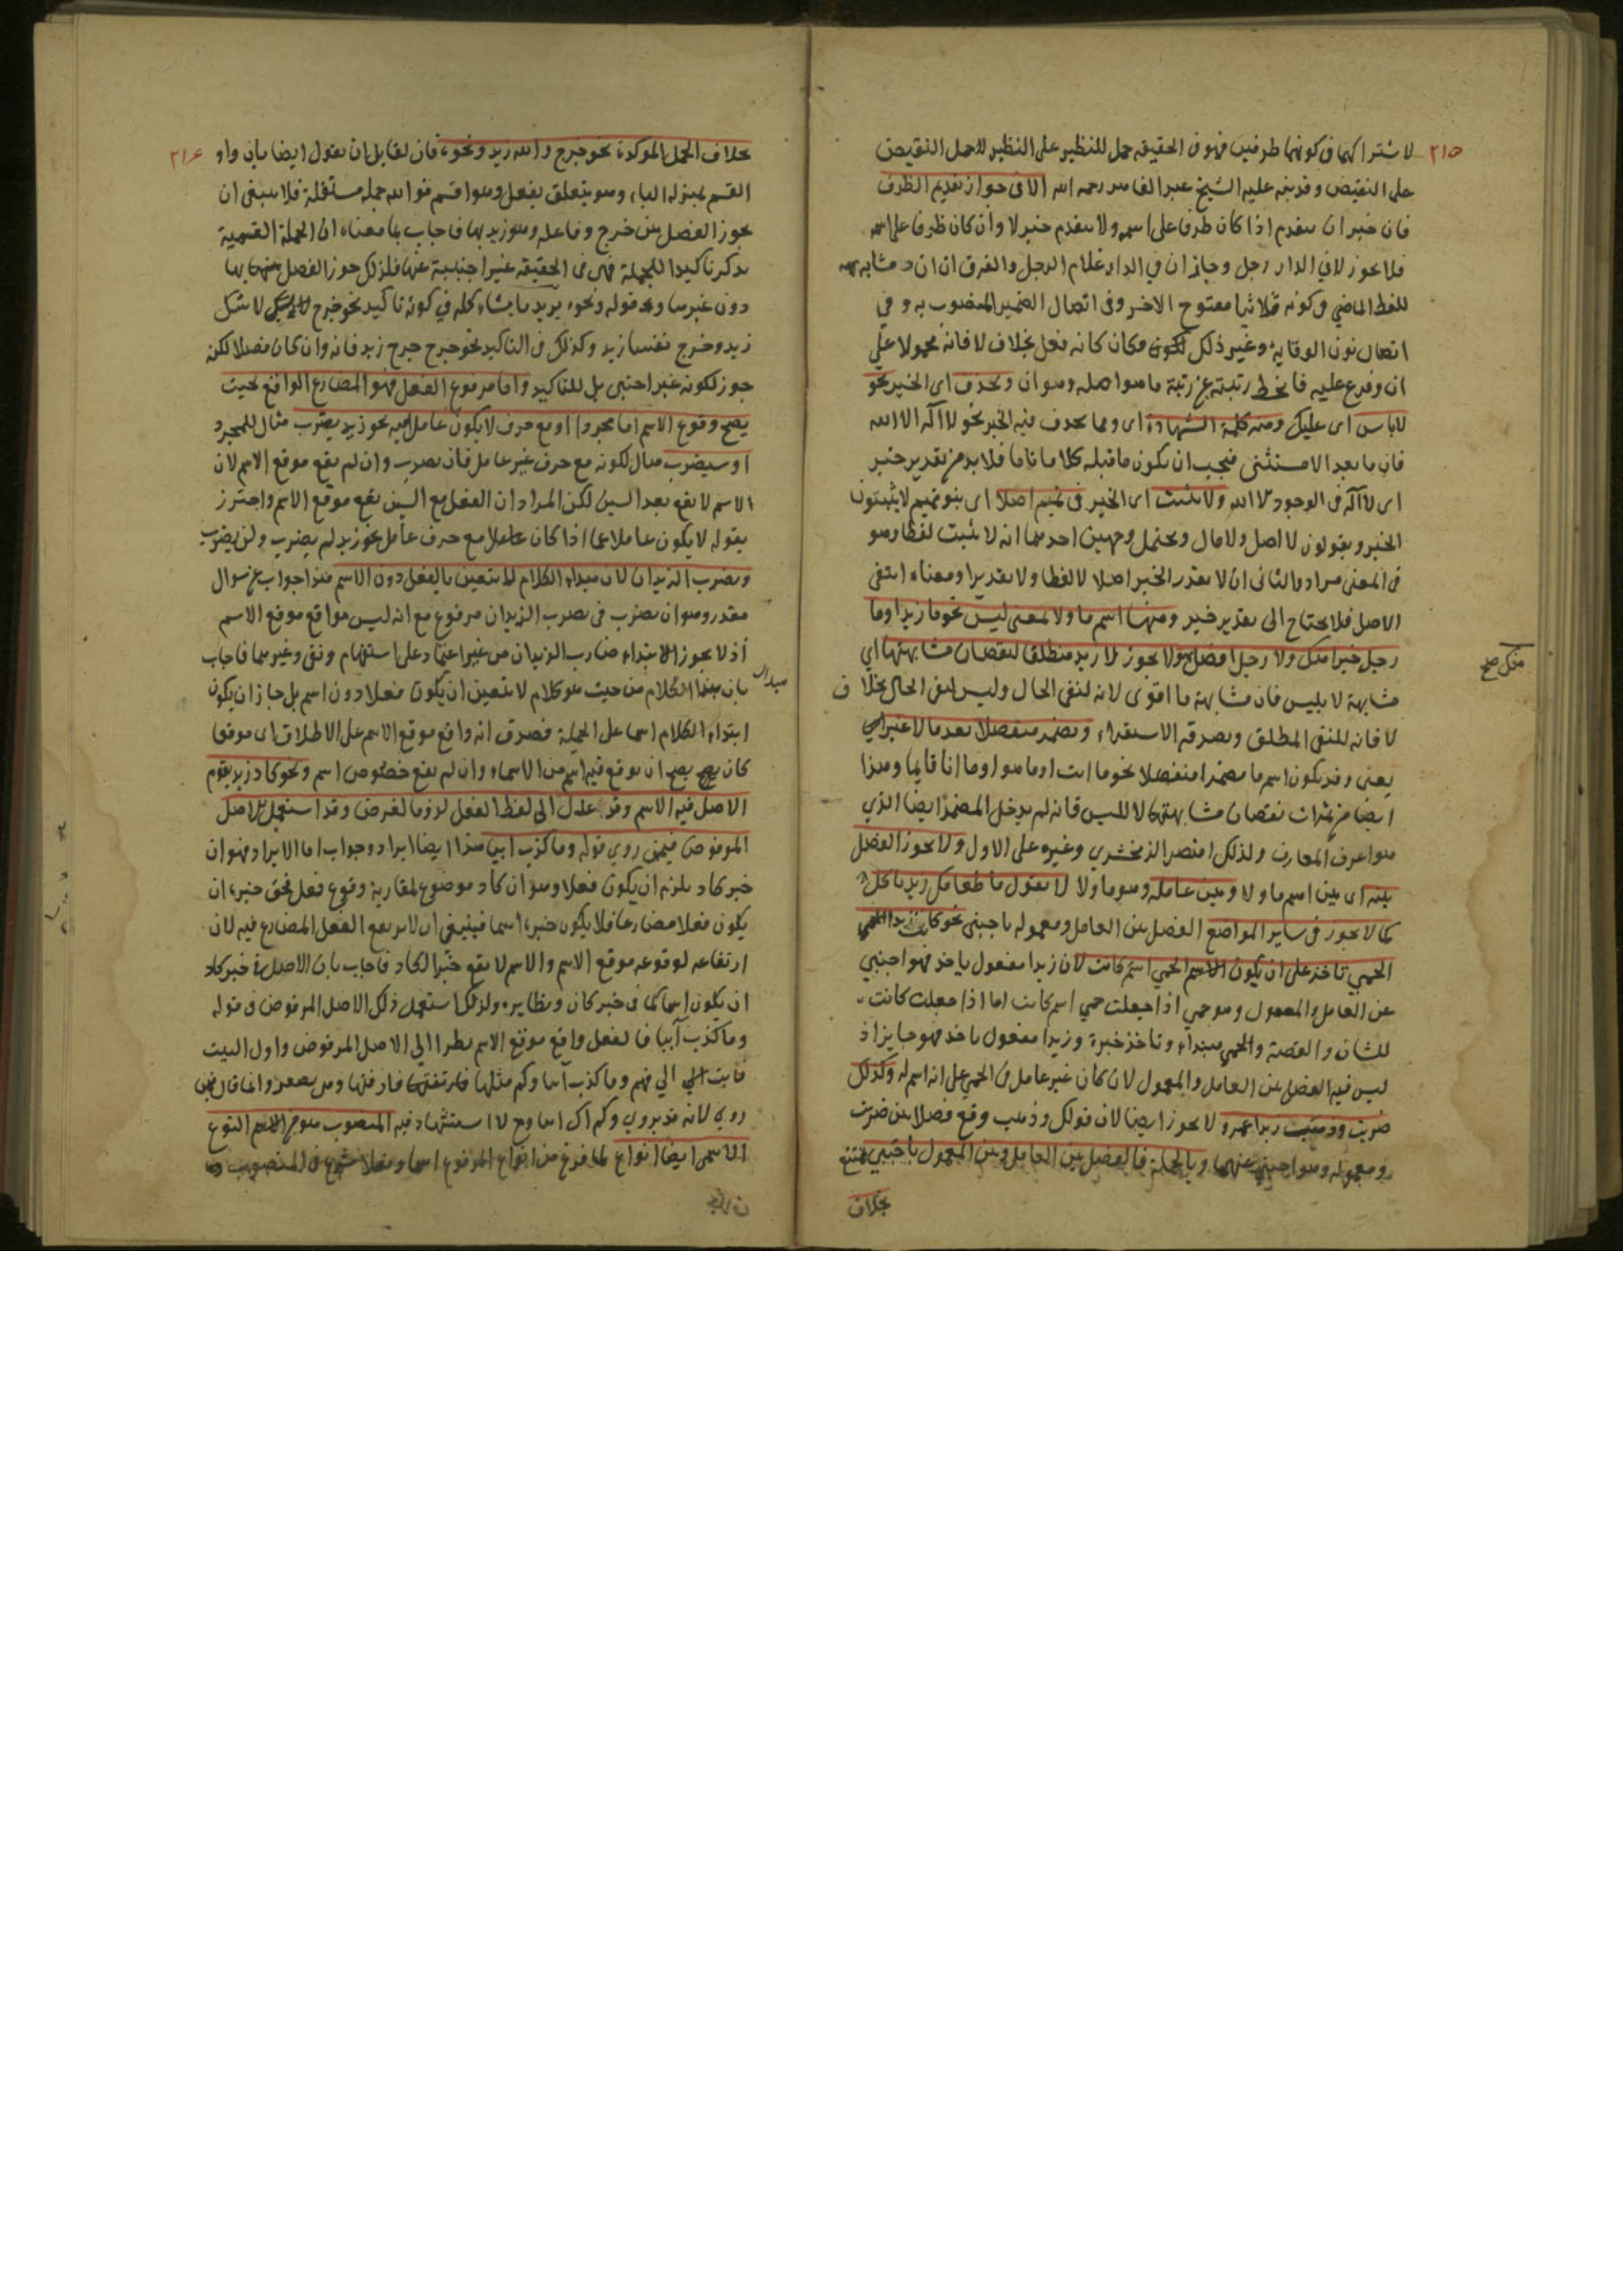 ٢١٥
لاشتراكهما فى كونهما طرفين فهو فى الحقيقه حمل للنظير على النظير لا حمل النقيض
على النقيض وقد نبه عليه الشيخ عبد القاهر رحمه الله الا فى جواز تقديم الظرف
فان خبر ان يتقدم اذا كان ظرفا على اسمه ولا يتقدم خبر لا وان كان ظرفا على اسمه
فلا يجوز لا فى الدار رجل وجاز ان فى الدار غلام الرجل والفرق ان ان مشابهه
للفظ الماضي فى كونه ثلاثيا مفتوح الاخر وفى اتصال الضمير المنصوب به وفي
اتصال نون الوقاية وغير ذلك فكان كانه فعل بخلاف لا فانه محمولا على
ان وفرع عليه فانحط رتبته عن رتبة ما هو اصله وهو ان ويحذف اى الخبر نحو
لا باس اى عليك ومنه كلمة الشهادة اى ومما يحذف فيه الخبر نحو لا اله الا الله
فان ما بعد الا مستثنى فيجب ان يكون ما قبله كلاما تاما فلا بد من تقدير خبر
اى لا اله فى الوجود الا الله ولا يثبت اى الخبر فى تميم اصلا اى بنو تميم لا يثبتون
الخبر ويقولون لا اهل ولا مال ويحتمل وجهين احدهما انه لا يثبت لفظا وهو
فى المعنى مراد والثانى ان لا يقدر الخبر اصلا لا لفظا ولا تقديرا ومعناه انتفى
الاصل فلا يحتاج الى تقدير خبر ومنها اسم ما ولا لمعنى ليس نحو ما زيد اوما
رجل خيرا منك ولا رجل افضل ولا يجوز لا زيد منطلقا لنقصان مشابهتها اي
منك صح
مشابهة لا بليس فان مشابهة ما اقوى لانه لنفى الحال وليس لنفى الحال بخلاف
لا فانه للنفى المطلق ويصدقه الاستقراء ويضمر منفصلا بعد ما لا غير اي
يعنى وقد يكون اسم ما مضمرا منفصلا نحو ما انت او ما هو او ما انا قائما وهذا
ايضا من ثمرات نقصان مشابهتها لا لليس فانه لم يدخل المضمر ايضا الذي
هو اعرف المعارف ولذلك اقتصر الزمخشري وغيره على الاول ولا يجوز الفصل
بينه اى بين اسم ما ولا وبين عامله وهو ما ولا لا يقول ما طعامك زيد باكل
كما لا يجوز فى ساير المواضع الفصل بين العامل ومعموله باجنبى نحو كانت زيدا الحمى
الحمى تاخذ على ان يكون الحمى اسم كانت لان زيدا مفعول ياخذ فهو اجنبي
عن العامل والمعمول وهو حمى اذا جعلت حمى اسم كانت اما اذا جعلت كانت
للشان والقصة والحمى مبتداء وتاخذ خبره وزيدا مفعول ياخذ فهو جايز اذ
ليس فيه الفصل بين العامل والمعمول لان كان غير عامل فى الحمى على انه اسم له وكذلك
ضربت وذهبت زيدا عمرو لا يجوز ايضا لان قولك وذهب وقع فصلا بين ضربت
ومعموله وهو اجنبى عنهما وبالجملة فالفصل بين العامل وبين المعمول باجنبى ممتنع
بخلاف
٢١٦
بخلاف الجمل الموكدة نحو خرج والله زيد ونحوه فان لقايل ان يقول ايضا بان واو
القسم بمنزله الباء وهو يتعلق بفعل وهو اقسم فوالله جمله مستقلة فلا ينبغى ان
يجوز الفصل بين خرج وفاعله وهو زيد بها فاجاب بما معناه ان الجملة القسمية
يذكر تاكيدا للجملة فهى فى الحقيقه غير اجنبية عنها فلذلك جوز الفصل بينهما بها
دون غيرها وبحد قوله ونحوه يريد ما يشاءكله في كونه تاكيد نحو خرج لا شك
زيد وخرج نفسا زيد وكذلك فى التاكيد نحو خرج خرج زيد فانه وان كان فصلا لكنه
جوز لكونه غير اجنبى بل للتاكيد واما مرفوع الفعل فهو المضارع الواقع بحيث
يصح وقوع الاسم اما مجردا او مع حرف لا يكون عاملا فيه نحو زيد يضرب مثال للمجرد
او سيضرب مثال لكونه مع حرف غير عامل فان يضرب وان لم يقع موقع الاسم لان
الاسم لا يقع بعد السين لكن المراد ان الفعل مع السين يقع موقع الاسم واحترز
بقوله لا يكون عاملا عما اذا كان مع حرف عامل نحو زيد لم يضرب ولن يضرب
ويضرب الزيدان لان مبداء الكلام لا يتعين بالفعل دون الاسم هذا جواب عن سوال
مقدر وهو ان يضرب فى يضرب الزيدان مرفوع مع انه ليس مواقع موقع الاسم
اذ لا يجوز الابتداء ضارب الزيدان من غير اعتماد على استفهام ونفى وغيرهما فاجاب
بان مبداء الكلام من حيث هو كلام لا يتعين ان يكون فعلا دون اسم بل جاز ان يكون
ابتداء الكلام اسما على الجملة فصدق انه واقع موقع الاسم على الاطلاق اى موقعا
كان يصح ان يوقع فيه اسم من الاسماء وان لم يقع خصوص اسم ونحو كاد زيد يقوم
الاصل فيه الاسم وقد عدل الى لفظ الفعل لزوما لغرض وقد استعمل الاصل
المرفوض فيمن روى قوله وما كذب آيبا هذا ايضا ايراد وجواب اما الايراد فهو ان
خبر كاد يلزم ان يكون فعلا وهو ان كاد موضوع لمقاربة وقوع فعل فحق خبره ان
يكون فعلا مضارعا فلا يكون خبره اسما فينبغى ان لا يرتفع الفعل المضارع فيه لان
ارتفاعه لوقوعه موقع الاسم والاسم لا يقع خبرا لكاد فاجاب بان الاصل فى خبر كاد
ان يكون اسما كما فى خبر كان ونظايره ولذلك استعمل ذلك الاصل المرفوض فى قوله
وما كذب آيبا فالفعل واقع موقع الاسم نظرا الى الاصل المرفوض واول البيت
فابت الى فهم وما كذب آيبا وكم مثلها فارقتها وهى تصفر وانما قال فيمن
روى لانه قد يروى ولم اك ايبا وح لا استشهاد فيه المنصوب هو فى الاسم النوع
الاسمى ايضا انواع لما فرغ من انواع المرفوع اسما وفعلا شرع فى المنصوب